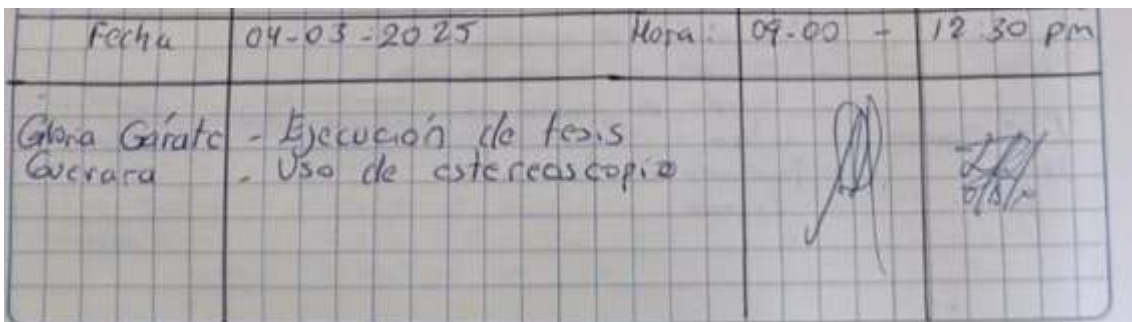 Fecha 04-03-2025 Hora: 09-00 - 12:30 pm
Gloria Gárate - Ejecución de tesis
Guevara - Uso de estereoscopio